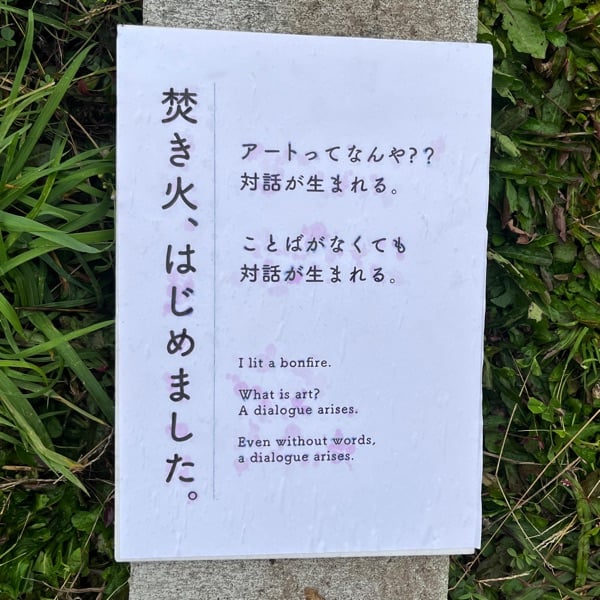 焚き火、はじめました。
アートってなんや??
対話が生まれる。
ことばがなくても
対話が生まれる。
I lit a bonfire.
What is art?
A dialogue arises.
Even without words,
a dialogue arises.